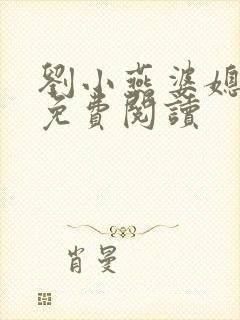 劉小燕婆媳
免費閱讀
肖曼